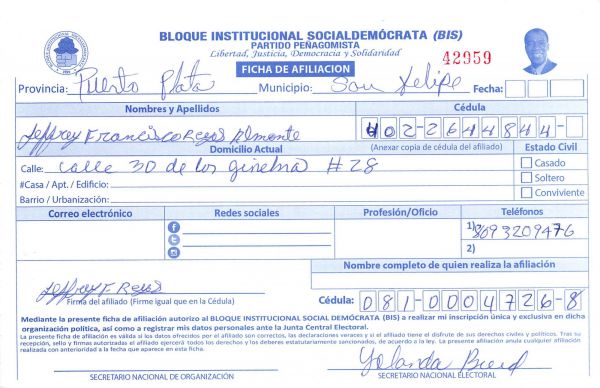 BLOQUE INSTITUCIONAL SOCIALDEMÓCRATA (BIS)
PARTIDO PEÑAGOMISTA
Libertad, Justicia, Democracia y Solidaridad
42959
FICHA DE AFILIACION
Provincia: Puerto Plata Municipio: San Felipe Fecha:
Nombres y Apellidos Cédula
Jeffrey Francisco Reyes Almonte 402-2644844-
Domicilio Actual (Anexar copia de cédula del afiliado) Estado Civil
Calle: Calle 30 de los #28 Casado
#Casa / Apt. / Edificio: Soltero
Barrio / Urbanización: Conviviente
Correo electrónico Redes sociales Profesión/Oficio Teléfonos
1) 8093209476
2)
Nombre completo de quien realiza la afiliación
Jeffrey F Reyes
Firma del afiliado (Firme igual que en la Cédula) Cédula: 081-0004726-8
Mediante la presente ficha de afiliación autorizo al BLOQUE INSTITUCIONAL SOCIAL DEMÓCRATA (BIS) a realizar mi inscripción única y exclusiva en dicha
organización política, así como a registrar mis datos personales ante la Junta Central Electoral.
La presente ficha de afiliación es válida si los datos ofrecidos por el afiliado son correctos, las declaraciones veraces y si el titular disfruta de sus derechos civiles y políticos. Tras su
recepción, sello y firmas autorizadas el afiliado ejercerá todos los derechos y los deberes estatutariamente sancionados, de acuerdo a la ley. La presente afiliación anula cualquier afiliación
realizada con anterioridad a la fecha que aparece en esta ficha.
Yolanda
SECRETARIO NACIONAL DE ORGANIZACIÓN SECRETARIO NACIONAL ELECTORAL